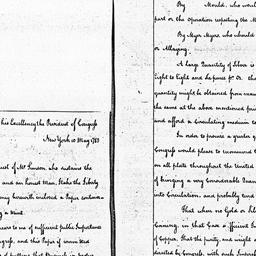 his Excellency the President of Congress
New York 10 May 1783
uest of Mr. Simson who sustains the
and an honest Man, I take the Liberty
herewith, enclosed a Paper contain
g a Mint.
ears to me of sufficient public Importance
ongress, and this Paper if even

By Mould, who
part or the Operation respecting the
By Myer Myers who should
or Allaying.
A large Quantity of Silver is
Eight to Eight and Sixpence pr Oz. the
quantity might be obtained from man
the same at the above mentioned price
and afford a Circulating medium to
In order to procure a greater q
Congress would please to recommend t
on all plate throughout the United
of bringing a very Considerable
into Circulation, and probably tend
That when no Gold or Sil
Coining, in that Case a sufficient
of Copper, That the purity, and weight
directed by Congress, with such